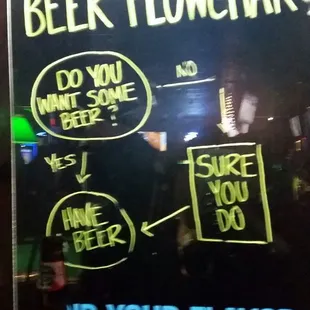 BEER FLOWCHART
DO YOU
WANT SOME
BEER?
NO
YES
SURE
YOU
DO
HAVE
BEER
YOUR